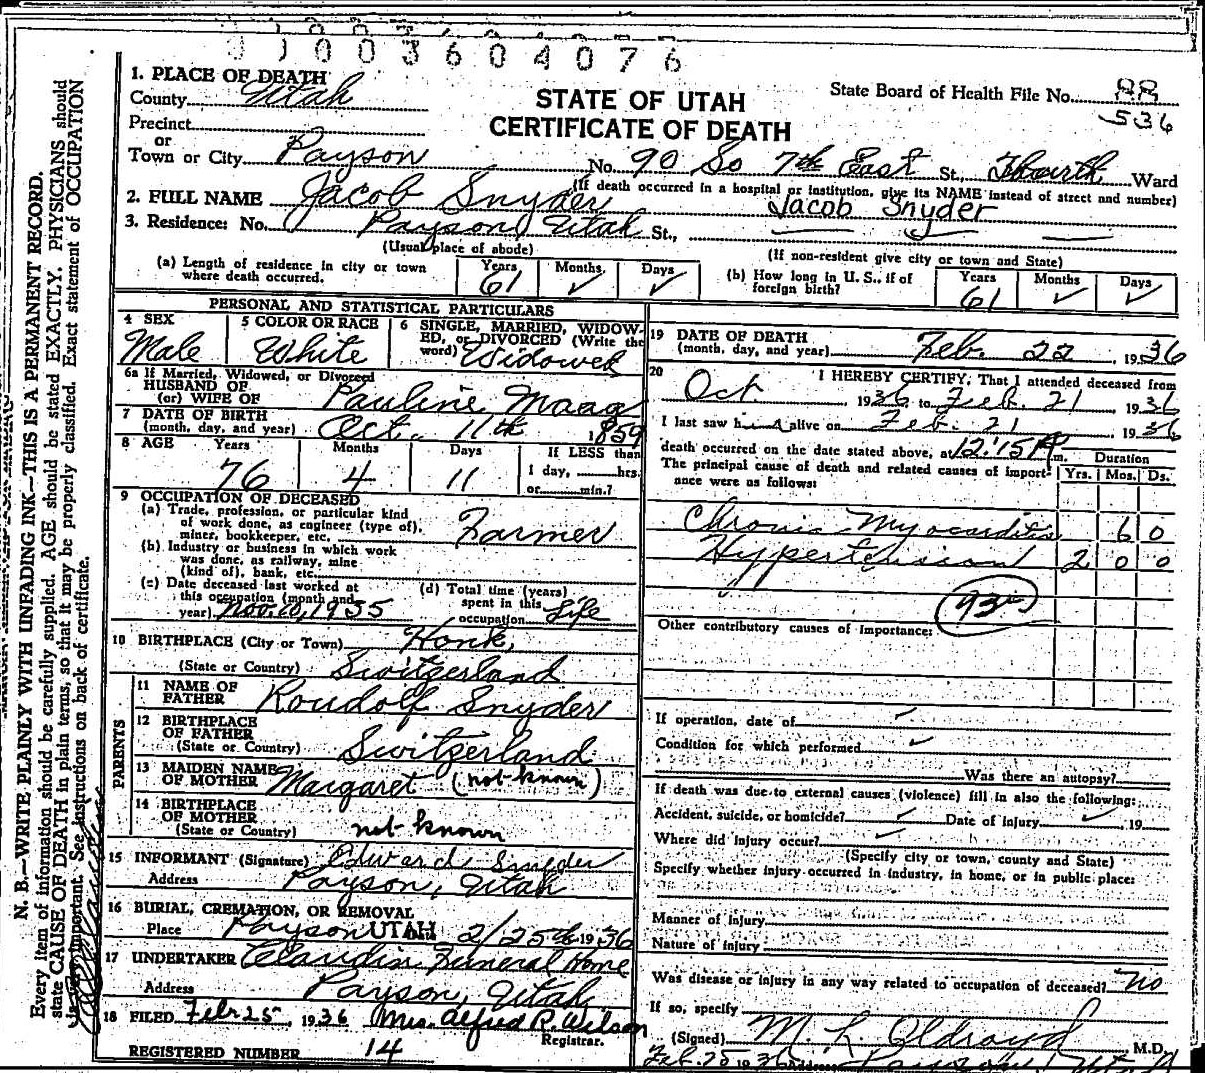 01003604076
1. PLACE OF DEATH
County Utah
Precinct
or
Town or City Payson
STATE OF UTAH
CERTIFICATE OF DEATH
State Board of Health File No. 88
536
No. 90 So 7th East St., Fourth Ward
(If death occurred in a hospital or institution, give its NAME instead of street and number)
2. FULL NAME Jacob Snyder Jacob Snyder
3. Residence: No. Payson, Utah St.,
(Usual place of abode)
(If non-resident give city or town and State)
(a) Length of residence in city or town where death occurred. Years 61 Months ✓ Days ✓
(b) How long in U. S., if of foreign birth? Years 61 Months ✓ Days ✓
PERSONAL AND STATISTICAL PARTICULARS
4 SEX Male
5 COLOR OR RACE White
6 SINGLE, MARRIED, WIDOWED, or DIVORCED (Write the word) Widowed
6a If Married, Widowed, or Divorced
HUSBAND OF
(or) WIFE OF Pauline Maag
7 DATE OF BIRTH
(month, day, and year) Oct. 11th 1859
8 AGE Years 76 Months 4 Days 11
If LESS than
1 day, hrs.
or min.?
9 OCCUPATION OF DECEASED
(a) Trade, profession, or particular kind
of work done, as engineer (type of),
miner, bookkeeper, etc. Farmer
(b) Industry or business in which work
was done, as railway, mine
(kind of), bank, etc.
(c) Date deceased last worked at
this occupation (month and
year) Nov. 10, 1935
(d) Total time (years)
spent in this
occupation Life
10 BIRTHPLACE (City or Town) Honk,
(State or Country) Switzerland
PARENTS
11 NAME OF
FATHER Roudolf Snyder
12 BIRTHPLACE
OF FATHER
(State or Country) Switzerland
13 MAIDEN NAME
OF MOTHER Margaret (not known)
14 BIRTHPLACE
OF MOTHER
(State or Country) not known
15 INFORMANT (Signature) Edward Snyder
Address Payson, Utah
16 BURIAL, CREMATION, OR REMOVAL
Place Payson UTAH Date 2/25th 1936
17 UNDERTAKER Claudin Funeral Home
Address Payson, Utah
18 FILED Feb 25, 1936 Mrs. Alfred R. Wilson
Registrar.
REGISTERED NUMBER 14
19 DATE OF DEATH
(month, day, and year) Feb. 22, 1936
20 I HEREBY CERTIFY, That I attended deceased from
Oct 1936 to Feb. 21, 1936
I last saw him alive on Feb. 21, 1936
death occurred on the date stated above, at 12:15 A m.
The principal cause of death and related causes of importance were as follows:
Duration
Yrs. Mos. Ds.
Chronic Myocarditis 6 0
Hypertension 2 0 0
Other contributory causes of importance:
If operation, date of ✓
Condition for which performed ✓
Was there an autopsy?
If death was due to external causes (violence) fill in also the following:
Accident, suicide, or homicide? ✓ Date of injury ✓, 19
Where did injury occur? ✓
(Specify city or town, county and State)
Specify whether injury occurred in industry, in home, or in public place:
Manner of injury
Nature of injury
Was disease or injury in any way related to occupation of deceased? No
If so, specify
(Signed) M. L. Oldroyd M.D.
Feb. 25 1936 Address Payson, Utah
N. B.—WRITE PLAINLY WITH UNFADING INK—THIS IS A PERMANENT RECORD.
Every item of information should be carefully supplied. AGE should be stated EXACTLY. PHYSICIANS should
state CAUSE OF DEATH in plain terms, so that it may be properly classified. Exact statement of OCCUPATION
is very important. See instructions on back of certificate.